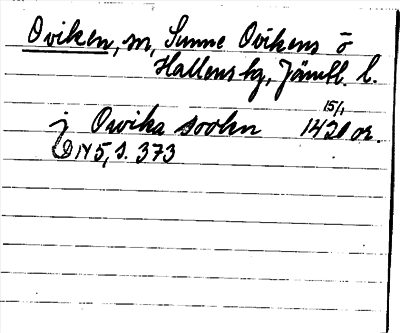 Oviken, m, Sunne Ovikens o
Hallens tg, Jämtl. l.
15/1
j Owika sookn 1420 or.
DN 5, s. 373